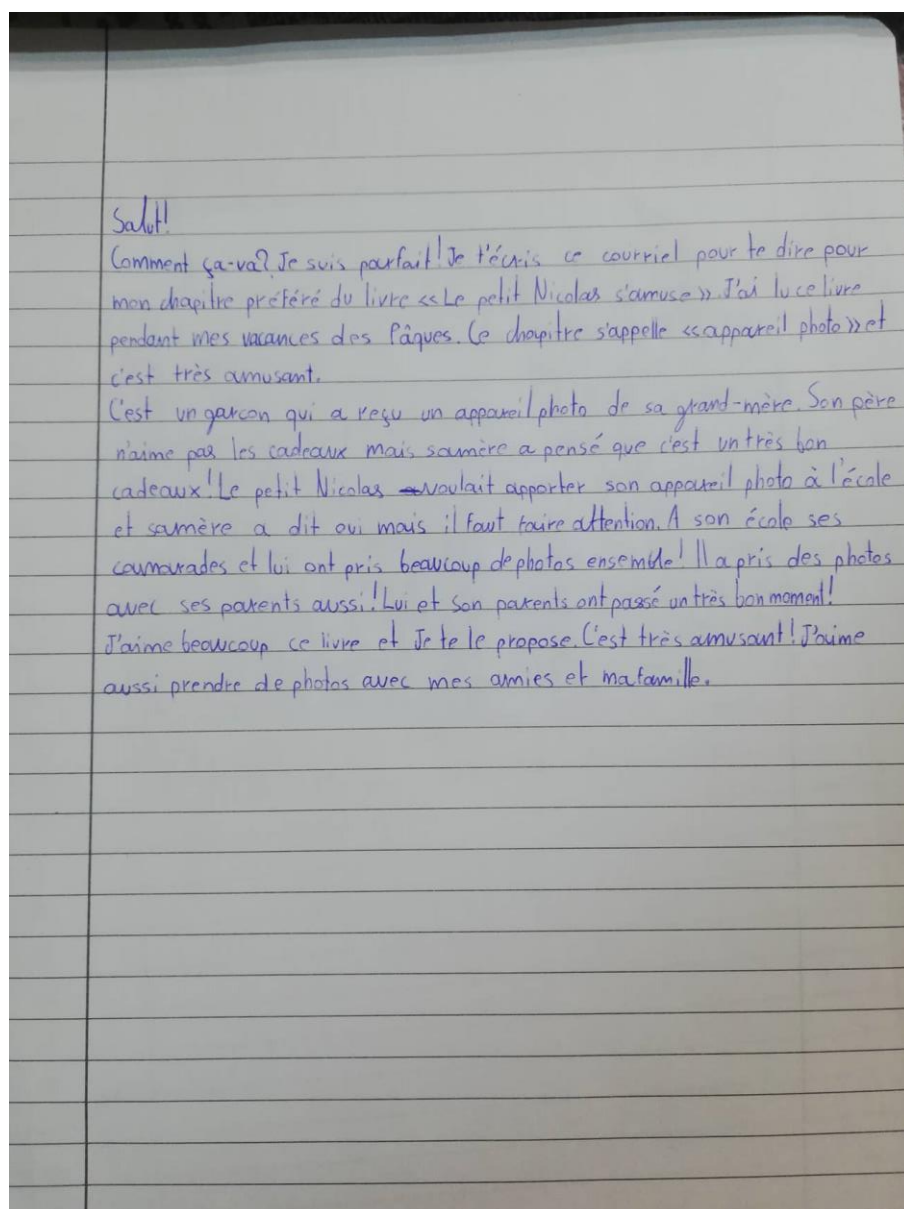 Salut!
Comment ça-va? Je suis parfait! Je t'écris ce courriel pour te dire pour
mon chapitre préféré du livre «Le petit Nicolas s'amuse». J'ai lu ce livre
pendant mes vacances des Pâques. Ce chapitre s'appelle «appareil photo» et
c'est très amusant.
C'est un garcon qui a reçu un appareil photo de sa grand-mère. Son père
n'aime pas les cadeaux mais sa mère a pensé que c'est un très bon
cadeaux! Le petit Nicolas voulait apporter son appareil photo à l'école
et sa mère a dit oui mais il faut faire attention. A son école ses
camarades et lui ont pris beaucoup de photos ensemble! Il a pris des photos
avec ses parents aussi! Lui et son parents ont passé un très bon moment!
J'aime beaucoup ce livre et Je te le propose. C'est très amusant! J'aime
aussi prendre de photos avec mes amies et ma famille.